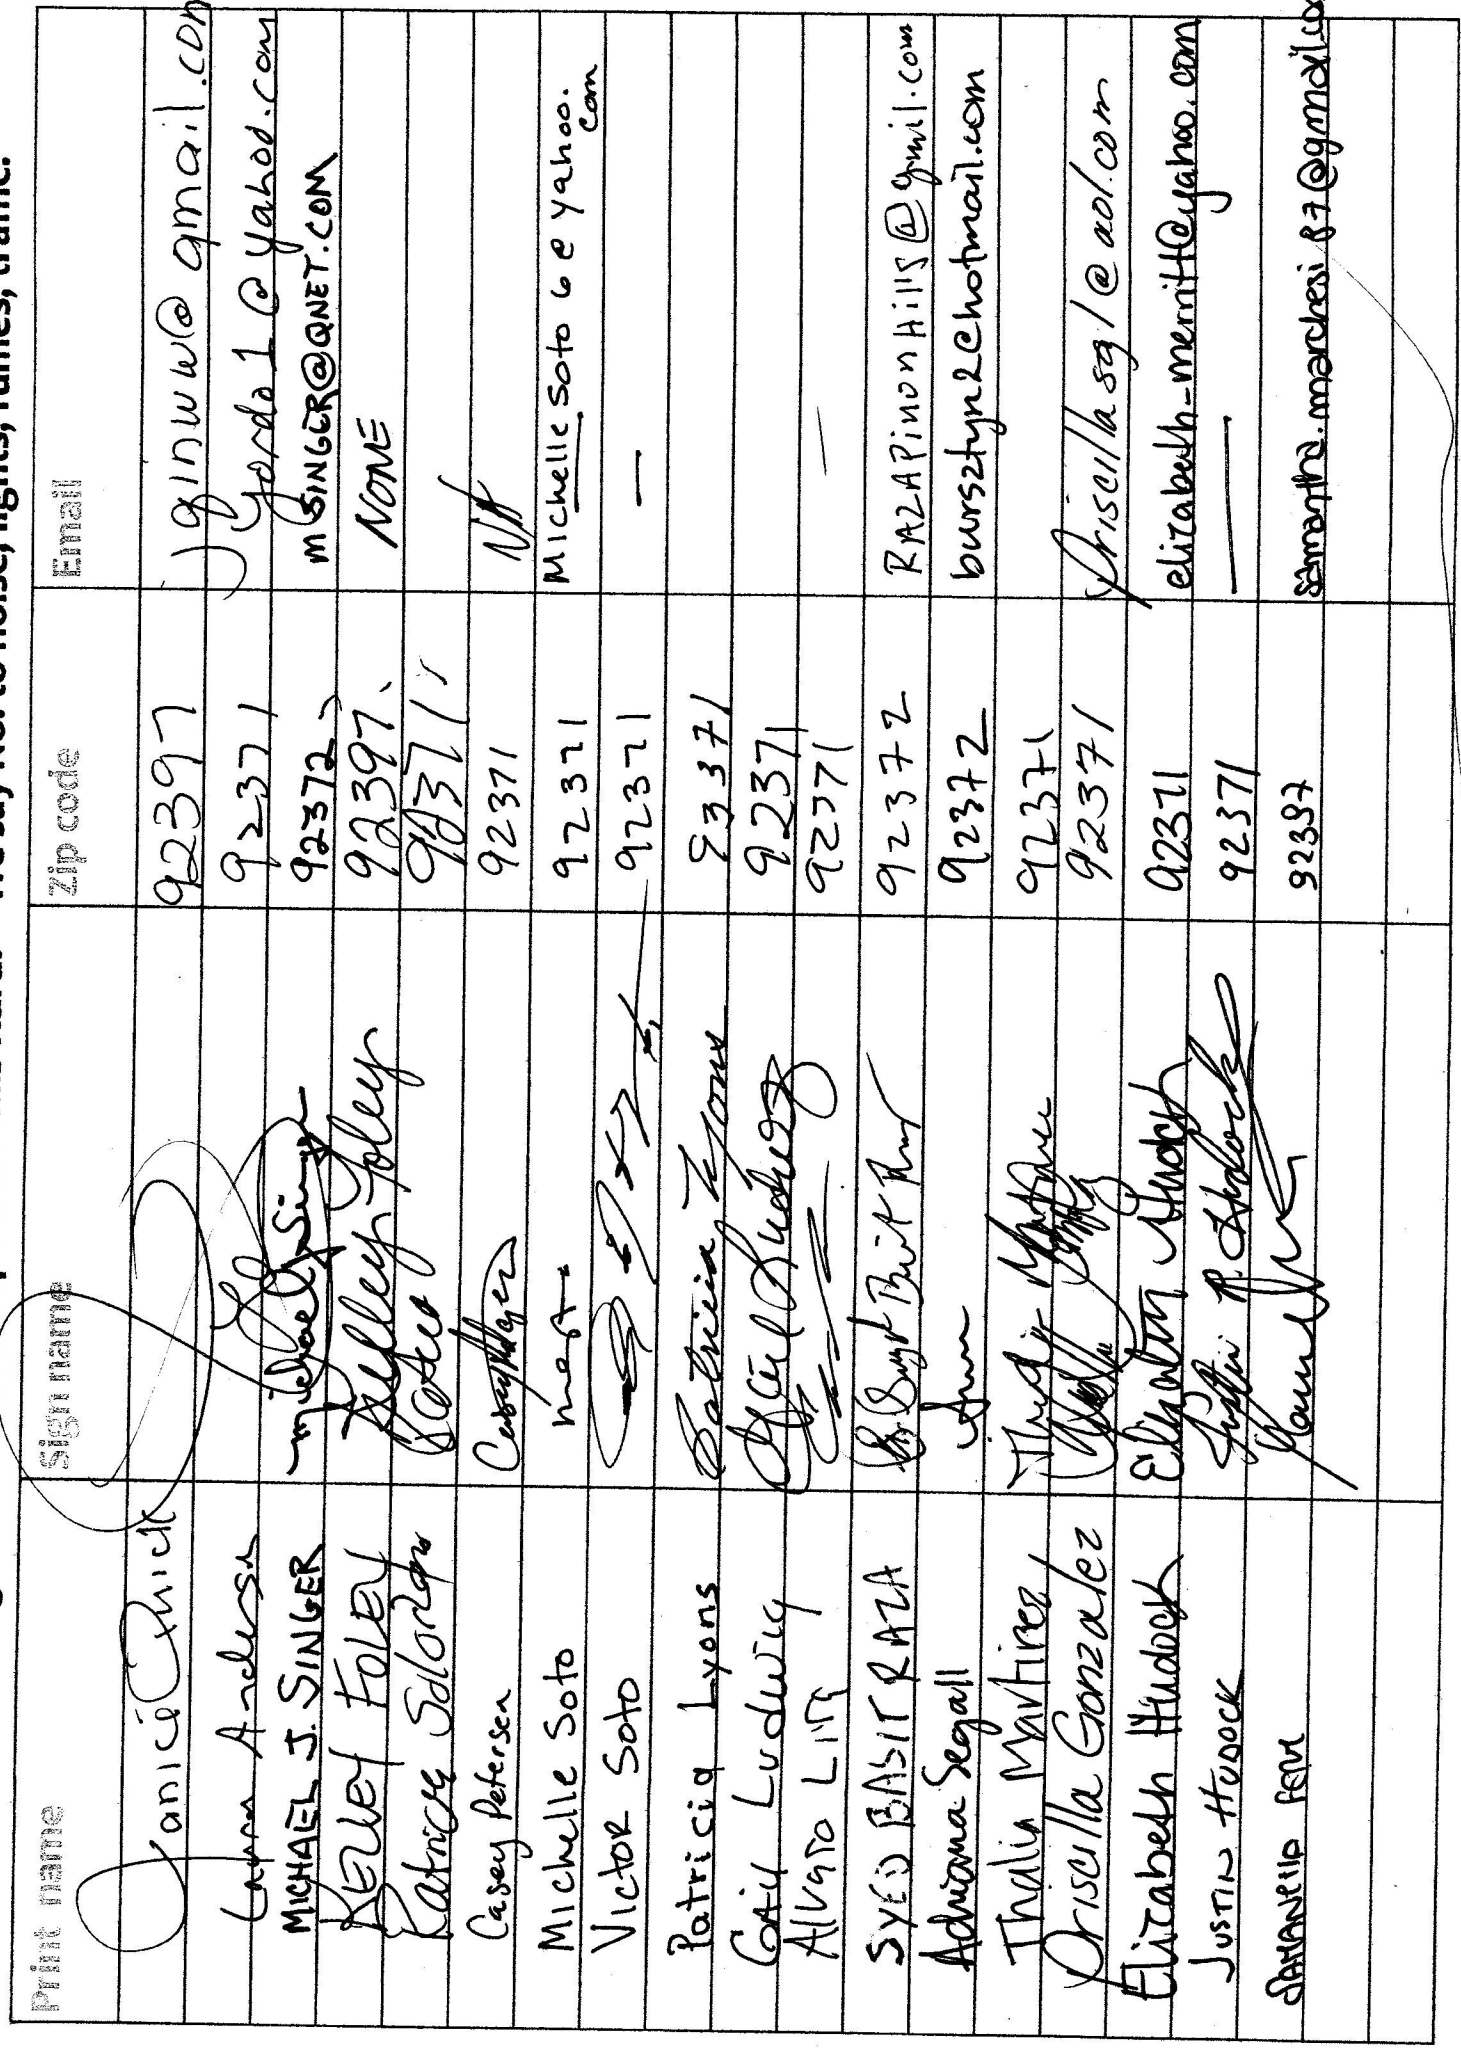 We say NO! to noise, lights, fumes, traffic.
Print name Sign name Zip code Email
Janice Quick 92397 jqinww@gmail.com
Laura Anderson 92371 yorda1@yahoo.com
MICHAEL J. SINGER Michael J Singer 92372 mSINGER@QNET.COM
KELLEY FOLEY Kelley Foley 92397 NONE
Patrice Solorzano 92371
Casey Petersen 92371 NA
Michelle Soto 92371 Michelle Soto 6 @ yahoo.com
Victor Soto 92371 —
Patricia Lyons Patricia Lyons 92371
Gail Ludwig Gail Ludwig 92371
Alvaro 92371 —
SYED BASIT RAZA 92372 RAZAPinonHills@gmail.com
Adriana Segall 92372 bursztyn2@hotmail.com
Thalia Martinez Thalia Martinez 92371
Priscilla Gonzalez 92371 Priscillasg1@aol.com
Elizabeth Hudock Elizabeth Hudock 92371 elizabeth-merritt@yahoo.com
JUSTIN HUDOCK Justin R. Hudock 92371 —
92397 samantha.marchesi87@gmail.co